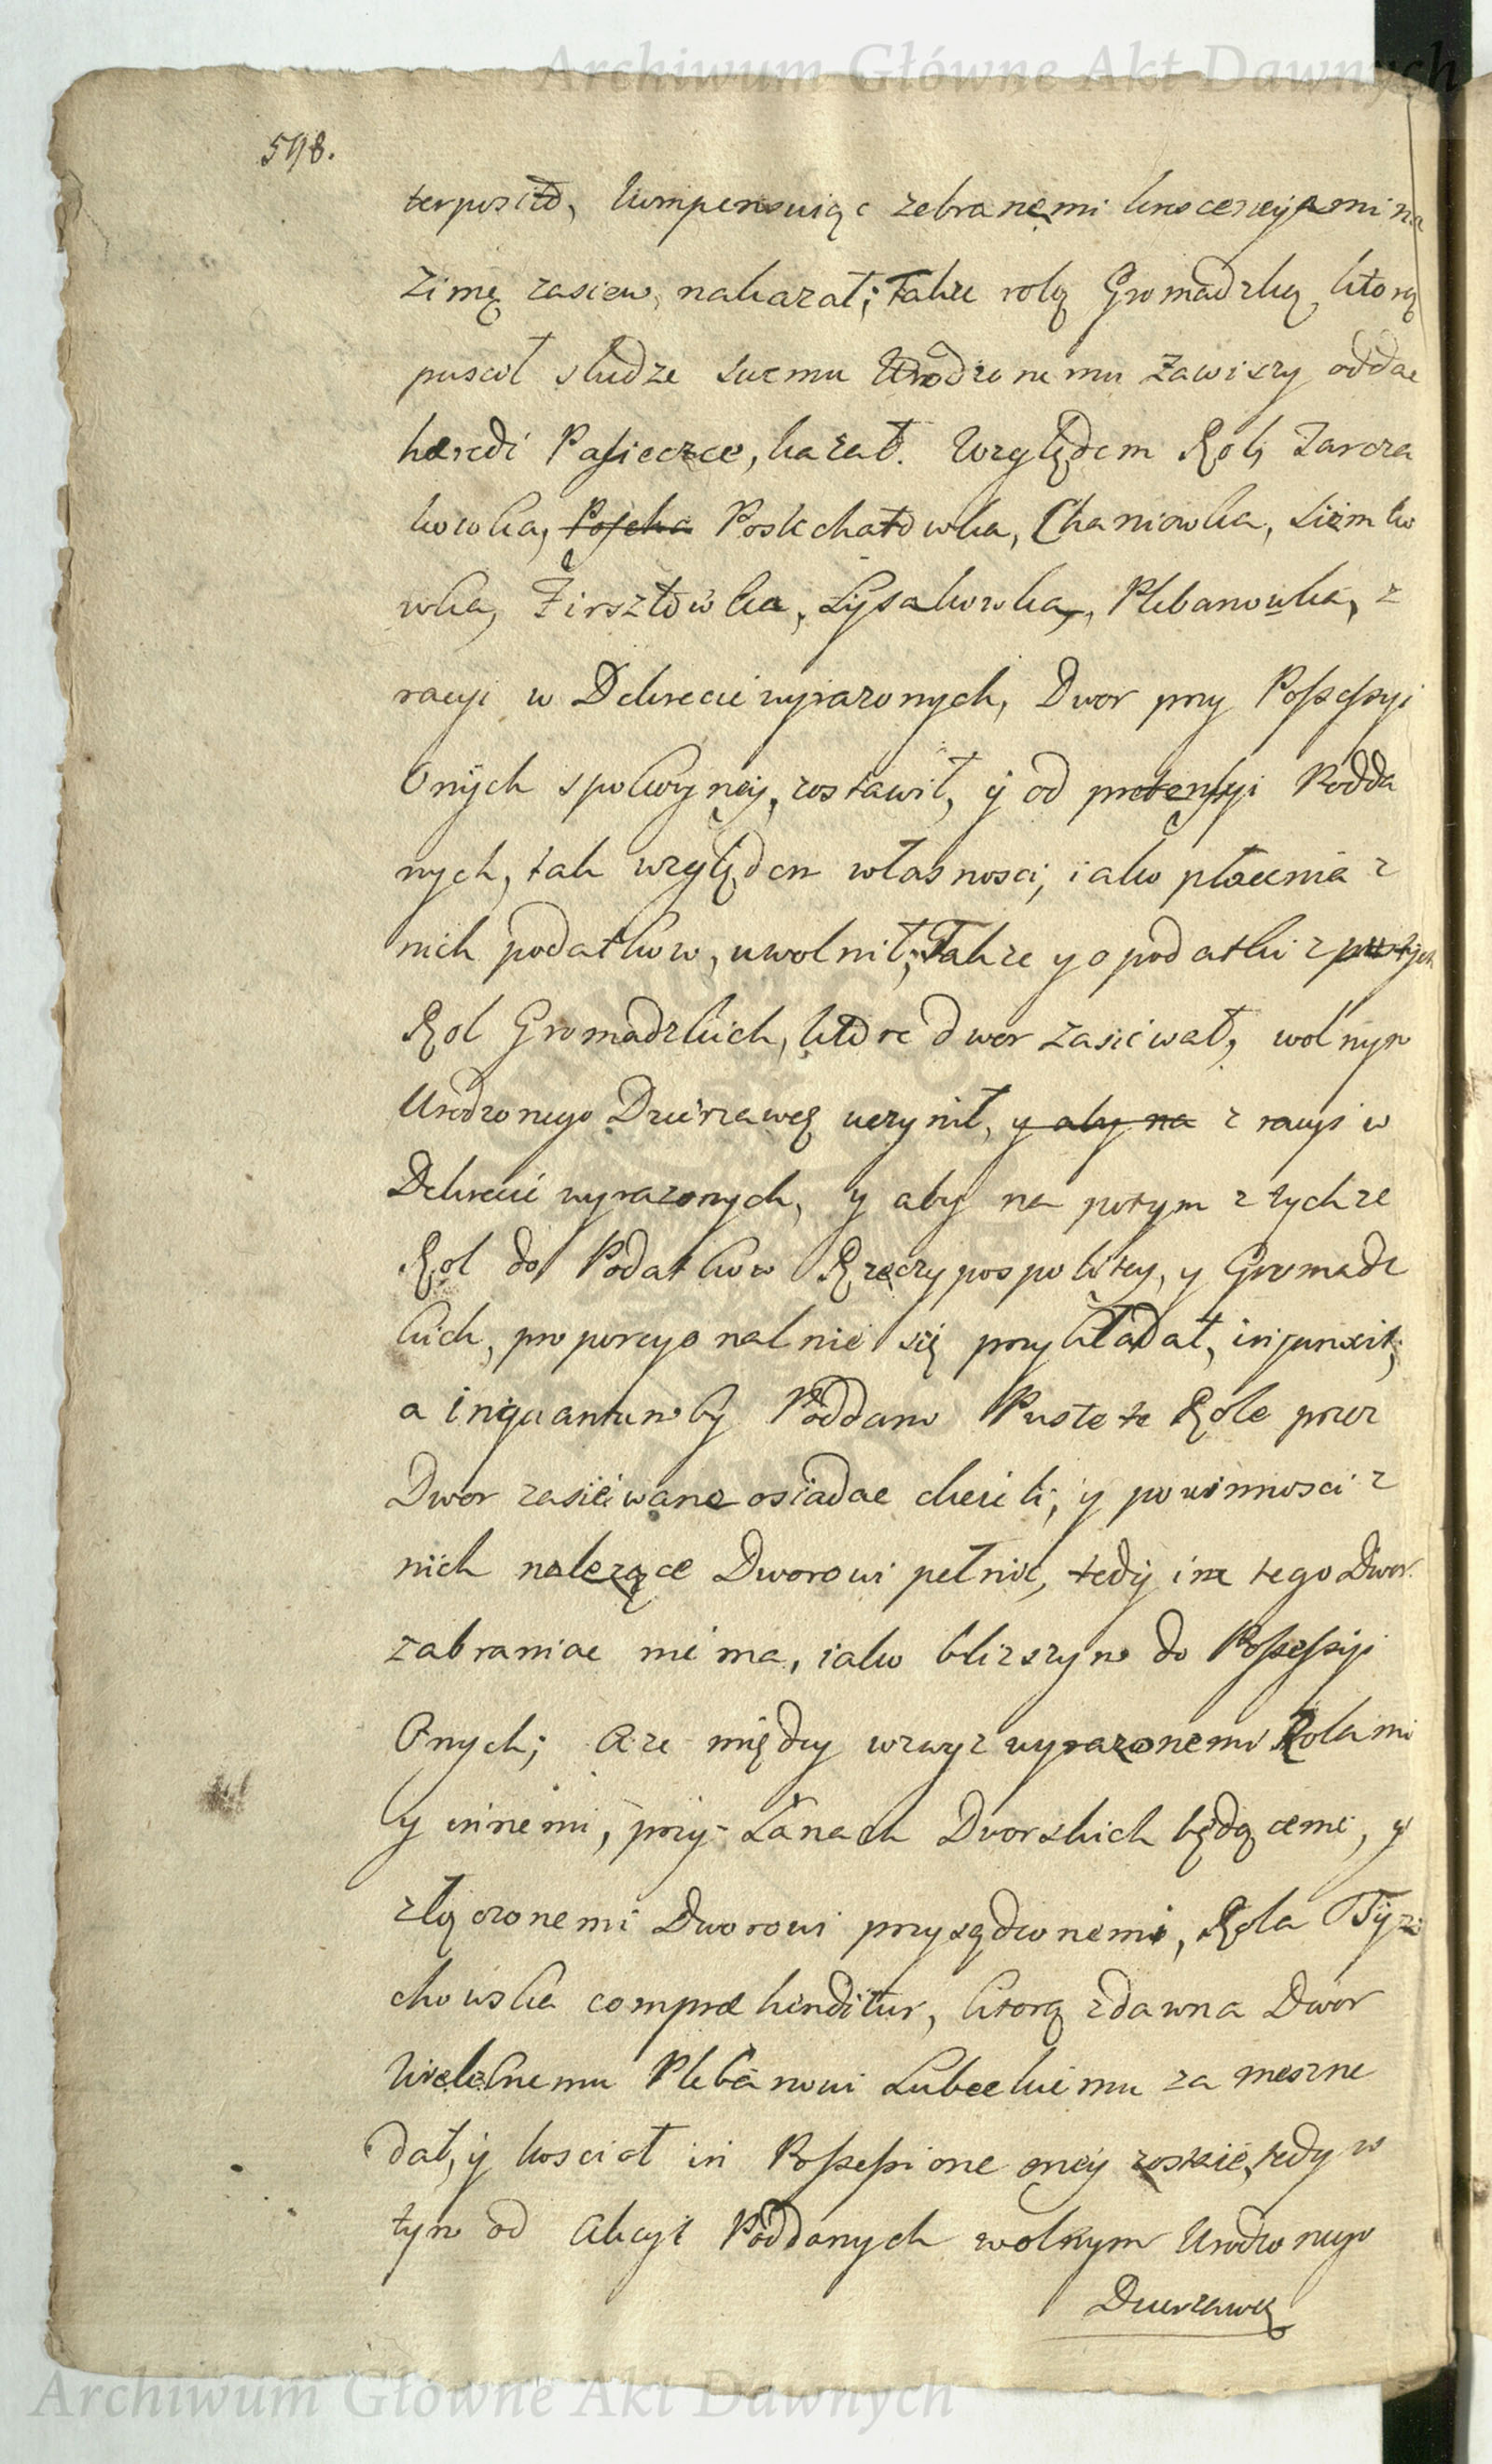 Archiwum Główne Akt Dawnych
598.
kompensuiąc zebranemi krescencyami na
zimę zasiew, nakazał; także rolę Gromadzką, ktorą
puscił słudze swemu Urodzonemu Zawiszy oddac
Pasieczce, kazał. Względem Roli Zarcza
kowka, Poscha Poskchałowka, Chaniowka, Siemko
wka, Zirsztówka, Łysakowka, Plebanowka, z
racyi w Dekrecie wyrazonych, Dwor przy Possessyi
Onych spokoyney, zostawił, y od pretensyi Podda
nych, tak względem własnosci, iako płacenia z
nich podatkow, uwolnił; Także y o podatki z pustych
Rol Gromadzkich, ktore dwor zasiewał, wolnym
Urodzonego Dzierzawcę uczynił, y aby na z racyi w
Dekrecie wyrazonych, y aby na potym z tychze
Rol do Podatkow Rzeczypospolitey, y Gromadz
kich, proporcyonalnie się przykładał, injunxit;
a inquantumby Poddani Puste te Role przez
Dwor zasiewane osiadac chcieli, y powinnosci z
nich nalezące Dworowi pełnic, tedy im tego Dwor
zabraniac nie ma, iako blizszym do Possessyi
Onych; A ze między wzwyz wyrazonemi Rolami
y innemi, przy Łanach Dworskich będącemi, y
złączonemi Dworowi przysądzonemi, Rola Tyzi
chowska compræhenditur, ktorą zdawna Dwor
Wielebnemu Plebanowi Lubeckiemu za meszne
dał, y koscioł in Possessione oney zostaie, tedy w
tym od Akcyi Poddanych wolnym Urodzonego
Dzierzawcę
Archiwum Główne Akt Dawnych